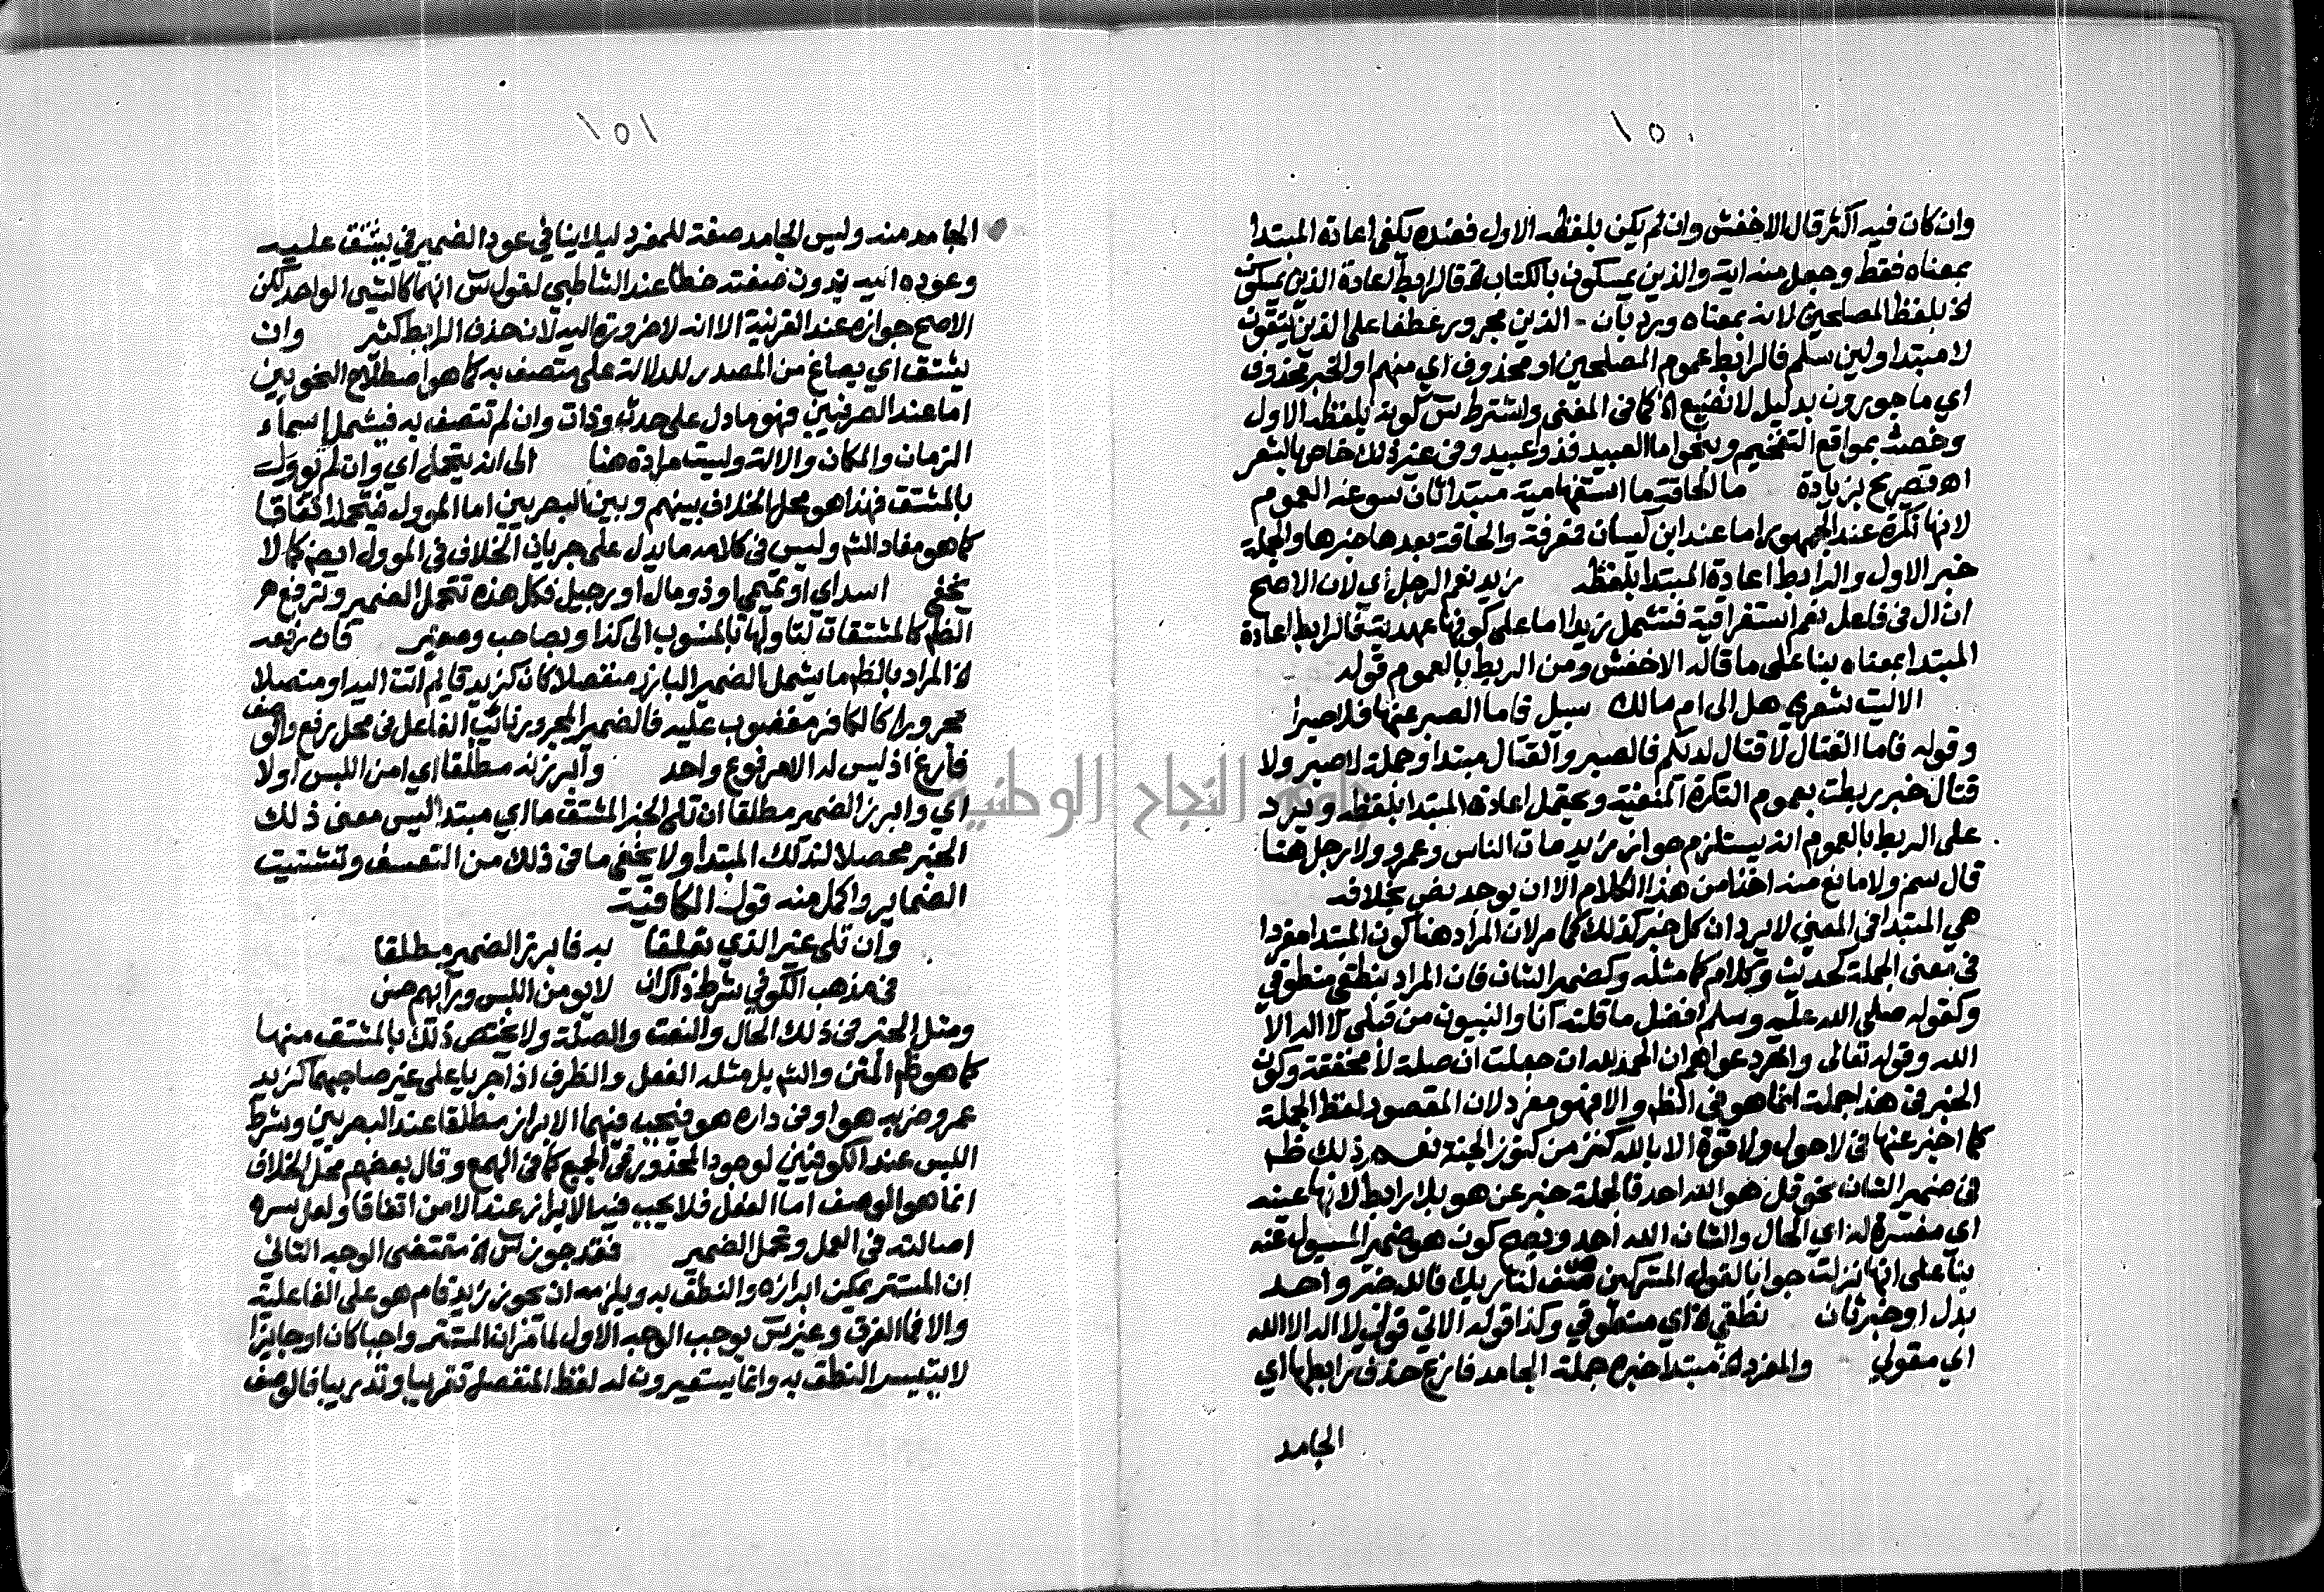 ١٥٠
وان كان فيه اكثر قال الاخفش وان لم يكن بلفظه الاول فعنده يكفي اعادة المبتدا
بمعناه فقط وجعل منه اية والذين يمسكون بالكتاب قال الرابط اعادة الذين يمسكون
بلفظ المصلحين لانه بمعناه ورد بان الذين مجرور عطفا على الذين يتقون
لا مبتدا ولين سلم فالرابط عموم المصلحين او محذوف اي منهم او الخبر محذوف
اي ماجورون بدليل لا نضيع كما في المغني واشترط س كونه بلفظه الاول
وخصت بمواقع التفخيم ونحو اما العبيد فذو عبيد وفي غير ذلك خاص بالشعر
اه تصريح بزيادة ما الحاقة ما استفهامية مبتدا ثان سوغه العموم
لانها نكرة عند الجمهور اما عند ابن كيسان فمعرفة والحاقة بعدها خبرها والجملة
خبر الاول والرابط اعادة المبتدا بلفظه زيد نعم الرجل اي لان الاصح
ان ال في فاعل نعم استغراقية فتشمل زيدا اما على كونها عهدية فالرابط اعادة
المبتدا بمعناه بنا على ما قاله الاخفش ومن الربط بالعموم قوله
الا ليت شعري هل الى ام مالك سبيل فاما الصبر عنها فلا صبرا
وقوله فاما القتال لا قتال لديكم فالصبر والقتال مبتدا وجملة لا صبر ولا
قتال خبر ربطت بعموم النكرة المنفية ويحتمل اعادة المبتدا بلفظه ويرد
على الربط بالعموم انه يستلزم جواز زيد مات الناس وعمرو ولا رجل هنا
قال سم ولا مانع منه اخذا من هذا الكلام الا ان يوجد نص بخلافه
هي المبتدا في المعني لا يرد ان كل خبر كذلك كما مر لان المراد هنا كون المبتدا مفردا
في معنى الجملة كحديث وكلام كما مثله وكضمير الشان فان المراد بنطقي منطوقي
وكقوله صلى الله عليه وسلم افضل ما قلته انا والنبيون من قبلي لا اله الا
الله وقوله تعالى واخر دعواهم ان الحمد لله ان جعلت ان صلة لا مخففة وكون
الخبر في هذا جملة انما هو في الظم والا فهو مفرد لان المقصود لفظ الجملة
كما اخبر عنها في لا حول ولا قوة الا بالله كنز من كنوز الجنة نعم ذلك ظم
في ضمير الشان نحو قل هو الله احد فالجملة خبر عن هو بلا رابط لانها عينه
اي مفسرة له اي الحال والشان الله احد ويصح كون هو ضمير المسيول عنه
بنا على انها نزلت جوابا لقول المشركين صف لنا ربك فالله خبر واحد
بدل او خبر ثان نطقي اي منطوقي وكذا قوله الاتي قولي لا اله الا الله
اي مقولي والمفرد مبتدا خبره جملة الجامد فارغ حذف رابطها اي
الجامد
١٥١
الجامد منه وليس الجامد صفة للمفرد ليلا ينافي عود الضمير في يشتق عليه
وعوده اليه بدون صفته خطا عند الشاطبي لقول س انهما كالشي الواحد لكن
الاصح جوازه عند القرينة الا انه لا ضرورة اليه لان حذف الرابط كثير وان
يشتق اي يصاغ من المصدر للدلالة على متصف به كما هو اصطلاح النحويين
اما عند الصرفيين فهو ما دل على حدث وذات وان لم تتصف به فيشمل اسماء
الزمان والمكان والالة وليست مرادة هنا الى انه يتحمل اي وان لم يوول
بالمشتق فهذا هو محل الخلاف بينهم وبين البصريين اما الموول فيتحمله اتفاقا
كما هو مفاد الشم وليس في كلامه ما يدل على جريان الخلاف في الموول ايضم كما لا
يخفى اسد اي او تميمي او ذو مال او رجيل فكل هذه تتحمل الضمير وترفع
الظم كالمشتقات لتاولها بالمنسوب الى كذا وبصاحب وصغير فان رفعه
المراد بالظم ما يشمل الضمير البارز منفصلا كان كزيد قايم انت اليه او متصلا
مجرورا كالكافر مغضوب عليه فالضمير المجرور نائب الفاعل في محل رفع والوصف
فارغ اذ ليس له الا مرفوع واحد وابرزنه مطلقا اي امن اللبس اولا
اي وابرز الضمير مطلقا ان تلا الخبر المشتق ما اي مبتدا ليس معنى ذلك
الخبر محصلا لذلك المبتدا ولا يخفى ما في ذلك من التعسف وتشتيت
الضماير واكمل منه قول الكافية
وان تلى غير الذي تعلقا به فابرز الضمير مطلقا
في مذهب الكوفي شرط ذاك ان لا يومن اللبس ورايهم حسن
ومثل الخبر في ذلك الحال والنعت والصلة ولا يختص ذلك بالمشتق منها
كما هو ظم المتن والشم بل مثله الفعل والظرف اذا جريا على غير صاحبهما كزيد
عمرو ضربه هو او في داره هو فيجب فيهما الابراز مطلقا عند البصريين وبشرط
اللبس عند الكوفيين لوجود المحذور في الجميع كما في الهمع وقال بعضهم محل الخلاف
انما هو الوصف اما الفعل فلا يجب فيه الابراز عند الامن اتفاقا ولعل سره
اصالته في العمل وتحمل الضمير فقد جوز س مقتضى الوجه الثاني
ان المستتر يمكن ابرازه والنطق به ويلزمه ان يجوز زيد قام هو على الفاعلية
والا فما الفرق وغير س يوجب الوجه الاول لما مر ان المستتر واجبا كان او جايزا
لا يتيسر النطق به وانما يستعيرون له لفظ المنفصل تقريبا وتدريبا فالوصف
جامعة النجاح الوطنية